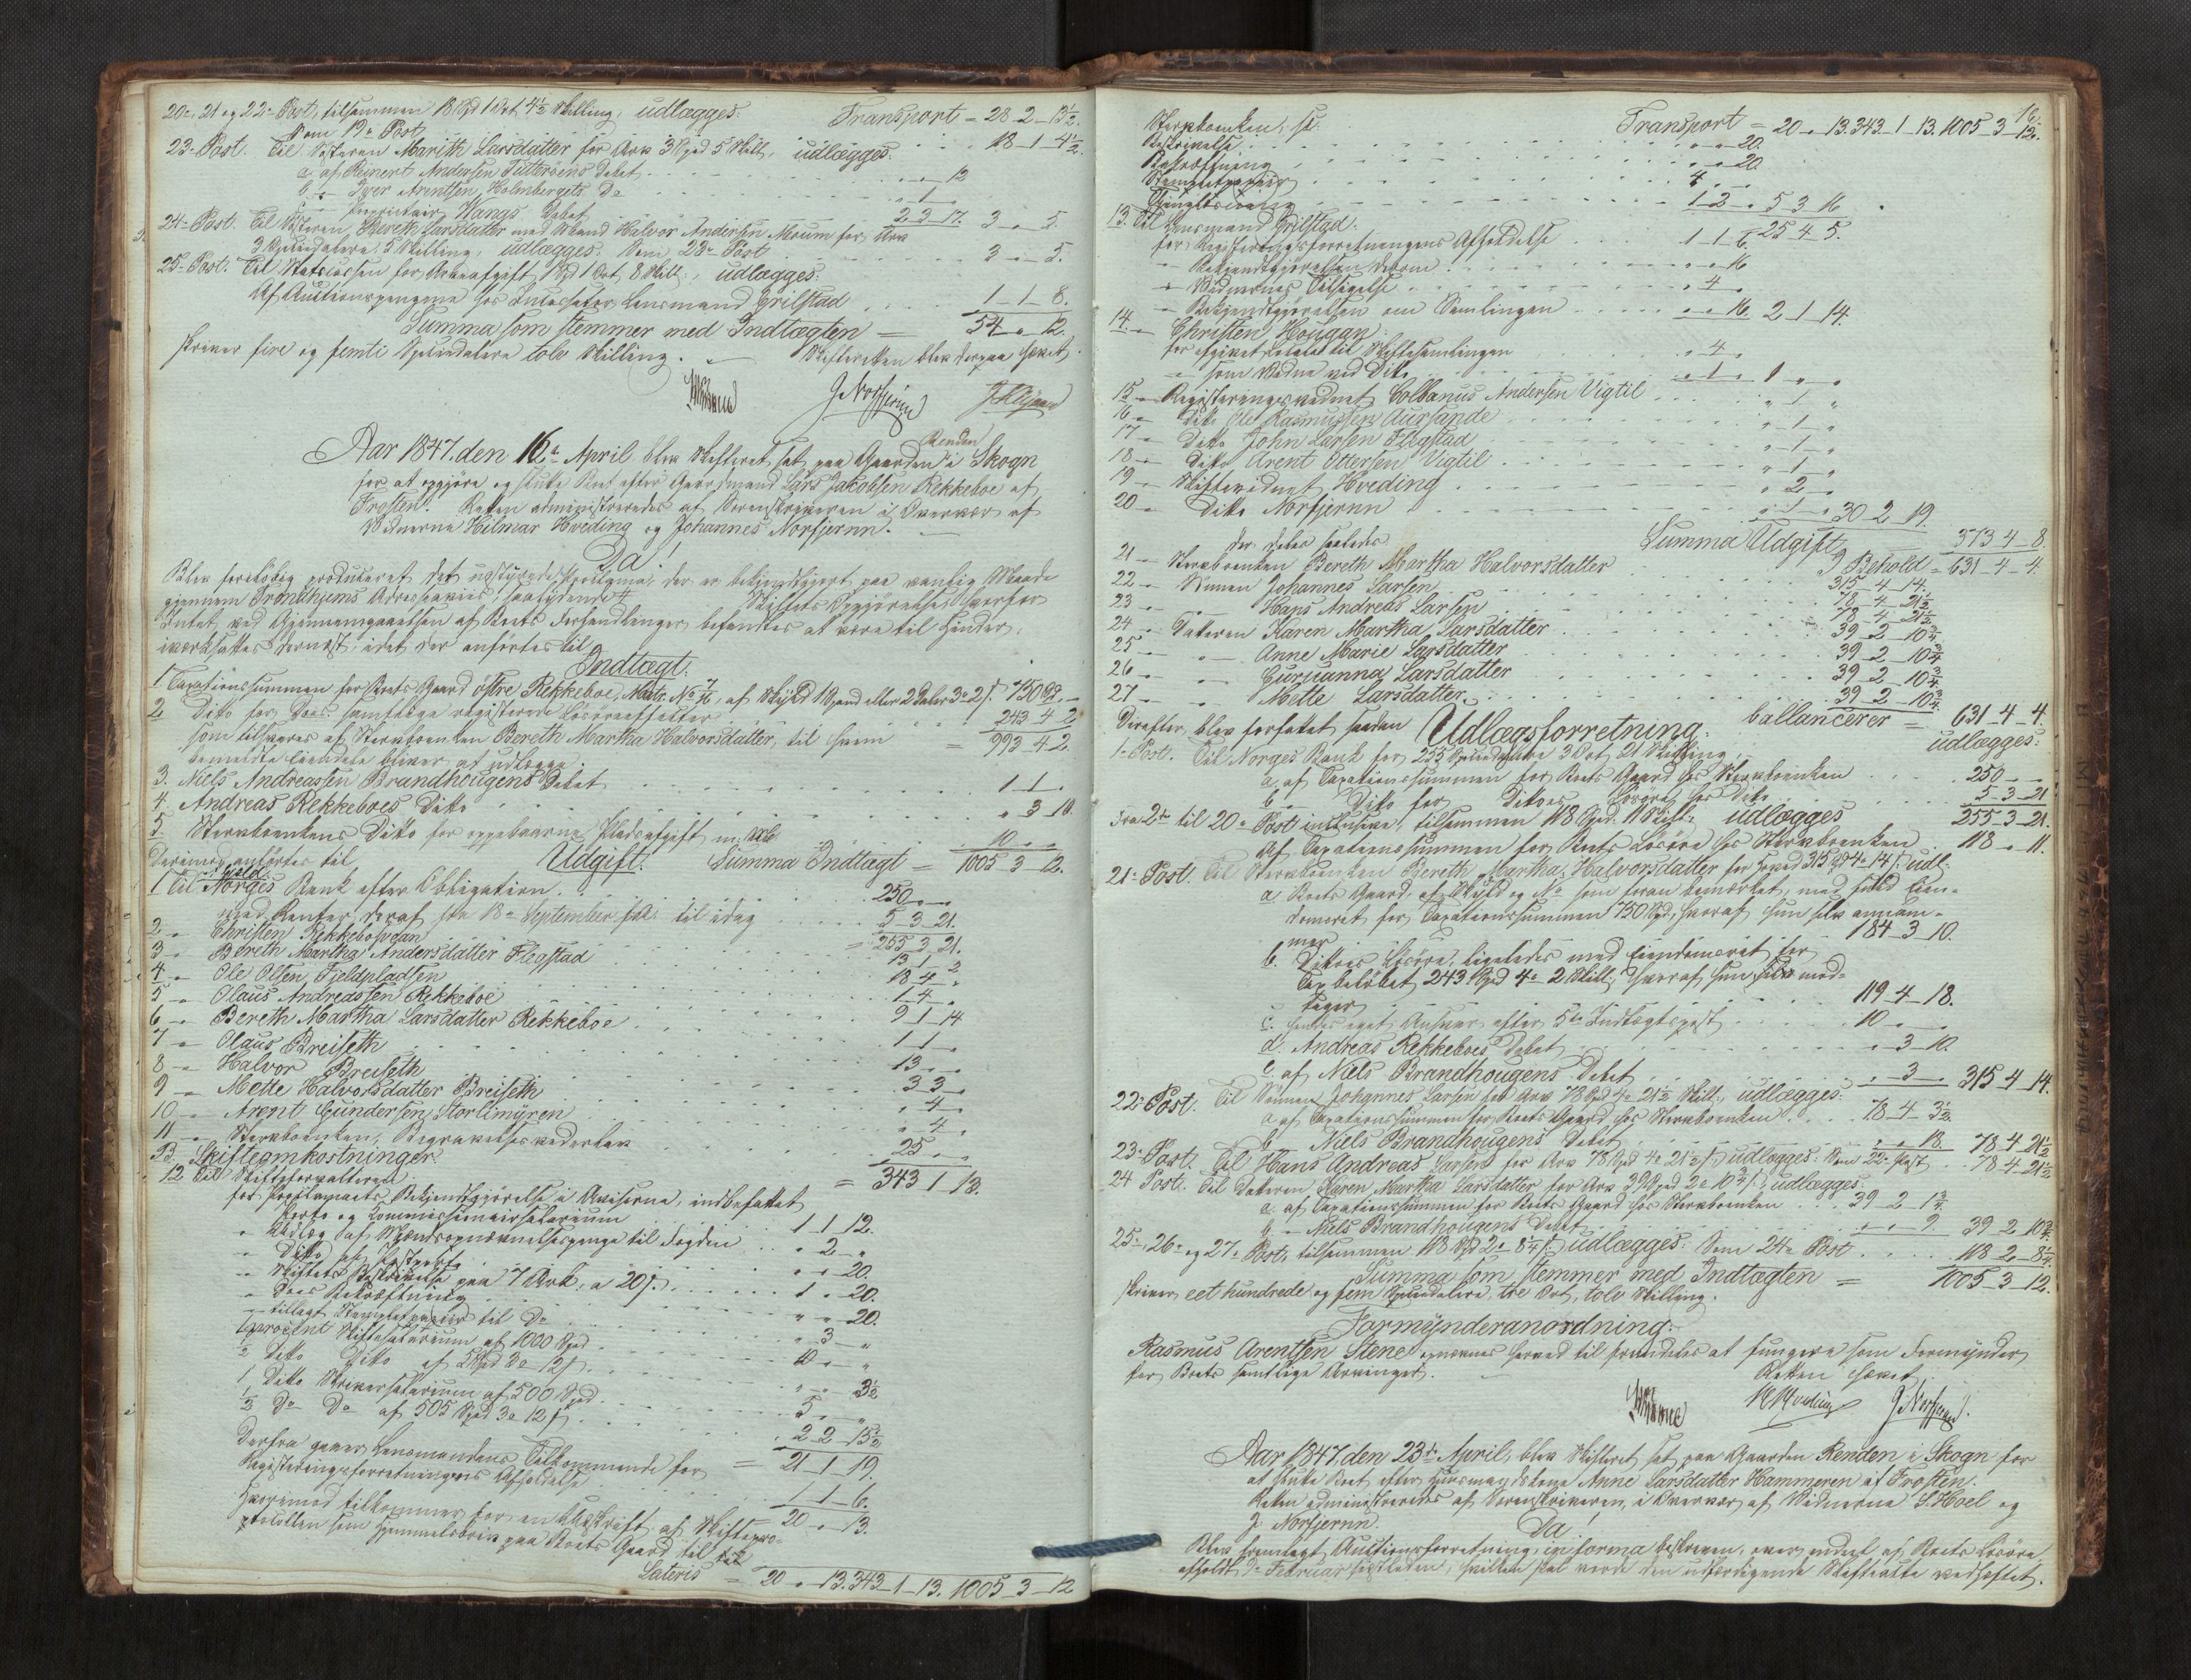 20de, 21 og 22de Post, tilsammen 18 Spd 1 Ort 4½ Skilling, udlægges: Transport = 28 - 2 - 13½.
Som 19de Post . . . 18 - 1 - 4½.
23 Post. Til Søsteren Marith Larsdatter for Arv 3 Spd 5 Skill. udlægges:
a. af Reinert Andersen Tetterøens Debet . . . 12
b. " Iver Arentsen Holmbergets Do . . . 1 "
c. " Proprietair Wangs Debet . . . 2 3 17. 3 " 5.
24de Post. Til Søsteren Bereth Larsdatter med Mand Halvor Andersen Moum for Arv
3 Speciedalere 5 Skilling, udlægges: Som 23de Post . . . 3 " 5.
25de Post. Til Statscassen for Arveafgift 1 Spd 1 Ort 8 Skill:, udlægges:
Af Auctionspengene hos Incassator Lensmand Grilstad . . . 1 - 1 - 8.
Summa som stemmer med Indtægten = 54 " 12.
skriver fire og femti Speciedalere tolv Skilling. — Skifteretten blev derpaa hævet.
J. Norfjernn
Aar 1847. den 16de April blev Skifteret sat paa Gaarden Renden i Skogn
for at opgjøre og slutte Boet efter Gaardmand Lars Jacobsen Rekkeboe af
Frosten. Retten administreredes af Sorenskriveren i Overvær af
Vidnerne Hilmar Hveding og Johannes Norfjernn. —
Da!
Blev foreløbig produceret det udstædede Proclama, der er bekjendtgjort paa vanlig Maade
gjennem Trondhjems Adresseavis, saalydende # Skiftets Opgjørelse, hvorfor
Intet, ved Gjennemgaaelsen af Boets Forhandlinger befandtes at være til Hinder,
iværksattes dernæst, idet der anførtes til
Indtægt:
1. Taxationssummen for Boets Gaard østre Rekkeboe, Matr. No 7/16, af Skyld 1 Spand eller 2 Daler 3 " 2 s. 750 Spd. —
2. Dito for Boets samtlige registerede Løsøreeffecter . . . 243 4 2
som tilsvares af Stervboenken Bereth Martha Halvorsdatter, til hvem = 993 4 2.
bemeldte Eiendele bliver at udlægge.
3. Niels Andreassen Brandhougens Debet . . . 1 1 "
4. Andreas Rekkeboes Dito . . . " 3 10.
5. Sterboenkens Dito for oppebaarne Pladsafgift m: m: . . . 10 " "
Derimod anførtes til Udgift: Summa Indtægt = 1005 3 12.
A. Gjæld:
1 Til Norges Bank efter Obligation . . . 250 " "
med Renter deraf fra 18de September f. A. til idag . . . 5 - 3 - 21.
= 255 3 21.
2 " Christen Rekkebosvean . . . 13 1 2
3 " Bereth Martha Andersdatter Flegstad . . . 18 4 "
4 " Ole Olsen Fjeldpladsen . . . 1 4 "
5 " Olaus Andreassen Rekkeboe . . . 9 1 14
6 " Bereth Martha Larsdatter Rekkeboe . . . 1 1 "
7 " Olaus Breiseth . . . 13 " "
8 " Halvor Breiseth . . . 3 3 "
9 " Mette Halvorsdatter Breiseth . . . " 4 "
10 " Arent Gundersen Storlimyren . . . " 4 "
11 " Stervboenken, Begravelsesvederlav . . . 25 " "
B. Skifteomkostninger: = 343 1 13.
12 Til Skifteforvalteren
for Proclamaets Bekjendtgjørelse i Aviserne, indbefattet
Porto og Commissionairsalarium . . . 1 1 12.
" Udlæg af Mændsopnævnelsespenge til Fogden . . . " 2 "
" Dito af Postporto . . . " " 20.
" Skiftets Beskrivelse paa 7 Ark, a 20 s. . . . 1 " 20.
" Dets Bekræftning . . . " " 20.
" tillagt Stemplet papir til Do . . . " 3 "
1 procent Skiftesalarium af 1000 Spd . . . 10 " "
½ Dito Dito af 5 Spd 3 " 12 s. . . . " " 3½
1 Dito Skriversalarium af 500 Spd . . . 5 " "
½ Do Do af 505 Spd 3 " 12 s. . . . 2 2 15½
= 21 - 1 - 19.
Derfra gaaer Lensmandens Tilkommende for
Registeringsforretningens Afholdelse . . . 1 1 6.
20 " 13.
Hvorimod tilkommer for en Udskrift af Skiftepro-
tocollen som Hjemmelsbrev paa Boets Gaard til
Lateris = 20 " 13. 343 - 1 - 13. 1005 - 3 - 12
16.
Transport = 20 " 13. 343 - 1 - 13. 1005 - 3 - 12.
Sterboenken, s:
Beskrivelse . . . " " 20.
Bekræftning . . . " " 20.
Stemplet papir . . . 4 "
Thinglæsning . . . 1 2 " 5 3 16
25 4 5.
13. Til Lensmand Grilstad:
for Registeringsforretningens Afholdelse . . . 1 1 6.
" Bekjendtgjørelsen derom . . . " " 16
" Vidnernes Tilsigelse . . . " 4 "
" Bekjendtgjørelsen om Samlingen . . . " " 16. 2 1 14.
14. " Christen Hougan:
for afgivet Locale til Skiftesamlingen . . . " 4 "
" som Vidne ved Dito . . . " 1 " 1 " "
15 " Registeringsvidnet Colbanus Andersen Vigtil . . . " 1 "
16 " Dito Ole Rasmussen Aursande . . . " 1 "
17 " Dito John Larsen Flegstad . . . " 1 "
18 " Dito Arent Ottersen Vigtil . . . " 1 "
19 " Skiftevidnet Hveding . . . " 2 "
20 " Dito Norfjernn . . . " 1 " 30 2 19.
Summa Udgift 373 4 - 8
I Behold = 631 - 4 - 4.
der deles saaledes
21 " Sterboenken Bereth Martha Halvorsdatter . . . 315 4 14.
22 " Sønnen Johannes Larsen . . . 78 - 4 - 21½
23 " " Hans Andreas Larsen . . . 78 - 4 - 21½
24 " Datteren Karen Martha Larsdatter . . . 39 - 2 - 10¾
25 " " Anne Marie Larsdatter . . . 39 - 2 - 10¾
26 " " Guruanna Larsdatter . . . 39 - 2 - 10¾
27 " " Mette Larsdatter . . . 39 - 2 - 10¾
ballancerer = 631 - 4 - 4.
Derefter blev forfattet saadan Udlægsforretning: udlægges:
1. Post. Til Norges Bank for 255 Speciedalere 3 Ort 21 Skilling,
a. af Taxationssummen for Boets Gaard hos Sterboenken . . . 250 " "
b. " Dito for Ditoes Løsøre hos Dito . . . 5 - 3 - 21
255 3 21.
Fra 2de til 20de Post inclusive, tilsammen 118 Spd. 11 Skill: udlægges
Af Taxationssummen for Boets Løsøre hos Sterboenken . 118 " 11.
21de Post. Til Sterboenken Bereth Martha Halvorsdatter for Hoved 315 Spd 4 " 14 s. udl:
a. Boets Gaard, af Skyld og No som foran bemærket, med fuld Eien-
domsret for Taxationssummen 750 Spd, hvoraf hun selv annam-
mer . . . 184 - 3 10.
b. Dittoes Løsøre, ligeledes med Eiendomsret for
Taxbeløbet 243 Spd 4 " 2 Skill, hvoraf hun selv mod-
tager . . . 119 - 4 - 18.
c. hendes eget Ansvar efter 5te Indtægtspost . . . 10 " "
d. Andreas Rekkeboes Debet . . . " 3 - 10.
e. af Niels Brandhougens Debet . . . " - 3 - " 315 - 4 - 14.
22de Post. Til Sønnen Johannes Larsen for Arv 78 Spd 4 " 21½ Skill., udlægges:
a. af Taxationssummen for Boets Gaard hos Sterboenken . . . 78 - 4 3½
b. " Niels Brandhougens Debet . . . " " 18. 78 - 4 - 21½
23de Post. Til Hans Andreas Larsen for Arv 78 Spd 4 " 21½ s. udlægges: Som 22de Post . 78 4 21½
24 Post. Til Datteren Karen Martha Larsdatter for Arv 39 Spd 2 " 10¾ s. udlægges:
a. af Taxationssummen for Boets Gaard hos Sterboenken . . . 39 - 2 1¾
b. " Niels Brandhougens Debet . . . " " 9. 39 - 2 10¾.
25de, 26de og 27de Post, tilsammen 118 Spd 2 " 8¼ s. udlægges: Som 24de Post . . . 118 2 - 8¼.
Summa som stemmer med Indtægten = 1005 - 3 - 12.
skriver eet hundrede og fem Speciedalere, tre Ort, tolv Skilling.
Formynderanordning:
Rasmus Arentsen Stene opnævnes herved til fremdeles at fungere som Formynder
for Boets samtlige Arvinger. — Retten hævet.
H Hveding J. Norfjernn.
Aar 1847. den 23de April, blev Skifteret sat paa Gaarden Renden i Skogn for
at slutte Boet efter Huusmandskone Anne Larsdatter Hammeren af Frosten.
Retten administreredes af Sorenskriveren, i Overvær af Vidnerne S. Hoel og
J. Norfjernn.
Da!
Blev fremlagt Auctionsforretning, in forma beskreven, over endeel af Boets Løsøre,
afholdt Februar sidstleden, hvilken skal vorde den udfærdigende Skifteakt vedhæftet.